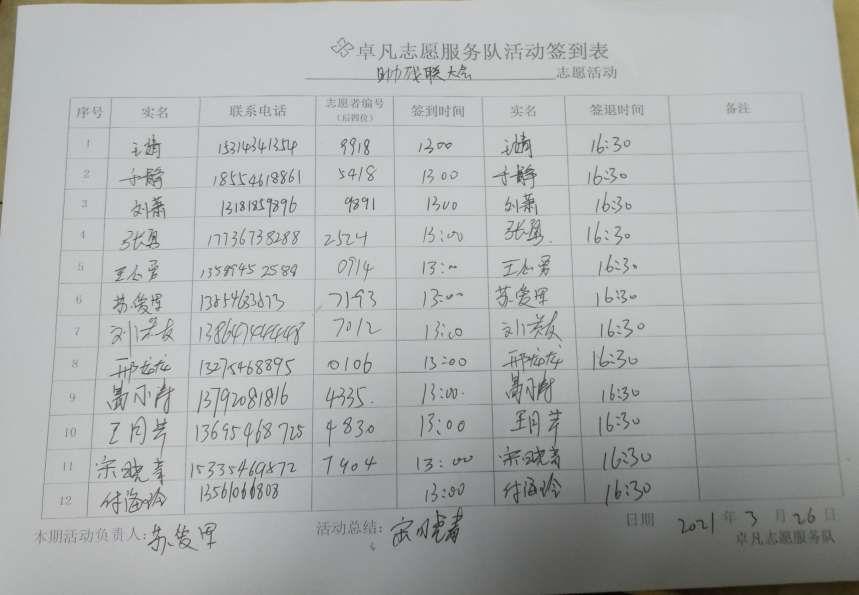 卓凡志愿服务队活动签到表
助残联大会 志愿活动
序号 实名 联系电话 志愿者编号(后四位) 签到时间 实名 签退时间 备注
1 王靖 15314341354 9918 1300 王靖 16:30
2 于静 18554618861 5418 13 00 于静 16:30
3 刘萧 13181859896 9891 1300 刘萧 16:30
4 张勇 17736738288 2524 13:00 张勇 16:30
5 0914 13:00 16:30
6 苏俊军 7193 13:00 苏俊军 16:30
7 7012 13:00 16:30
8 邢龙龙 13275468895 0106 13:00 邢龙龙 16:30
9 13792081816 4335. 13:00. 16:30
10 13695468725 4830 13:00 16:30
11 宋晓青 15335469872 7904 13:00 宋晓青 16:30
12 付海玲 13561066808 13:00 付海玲 16:30
本期活动负责人:苏俊军 活动总结: 宋晓青 日期 2021 年 3 月 26 日
卓凡志愿服务队